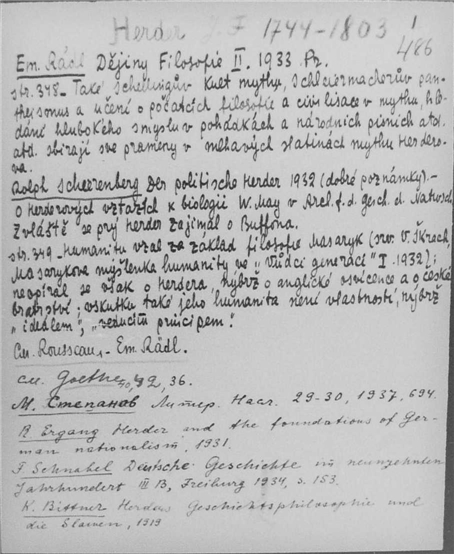 Herder J. F 1744-1803 1
486
Em. Rádl Dějiny Filosofie II. 1933. Pr.
str. 348 - Také Schellingův kult mythu, Schleiermacherův pan-
theismus a učení o počátcích filosofie a civilisace v mythu, hle-
dání hlubokého smyslu v pohádkách a národních písních atd.
atd. sbírají své prameny v mlhavých slatinách mythu Herdero-
va.
Rolph Scheerenberg Der politische Herder 1932 (dobré poznámky). -
o Herderových vztazích k biologii W. May v Arch. f. d. gesch. d. Naturwsch
Zvláště se prý Herder zajímal o Buffona.
str. 349 - Humanitu vzal za základ filosofie Masaryk (srov. V. Škrach,
Masarykova myšlenka humanity ve „Vůdci generací" I. 1932);
neopíral se však o Herdera, nýbrž o anglické osvícence a o české
bratrství; vskutku také jeho humanita není vlastností, nýbrž
„idedlem", „veducím principem".
См. Rousseau - Em. Rádl.
см. Goethe, 32, 36.
М. Степанов Литер. Насл. 29-30, 1937, 694.
R. Ergang Herder and the foundations of Ger-
man nationalism, 1931.
F. Schnabel Deutsche Geschichte im neunzehnten
Jahrhundert III B, Freiburg 1934, s. 153.
K. Bittner Herders Geschichtsphilosophie und
die Slawen, 1919